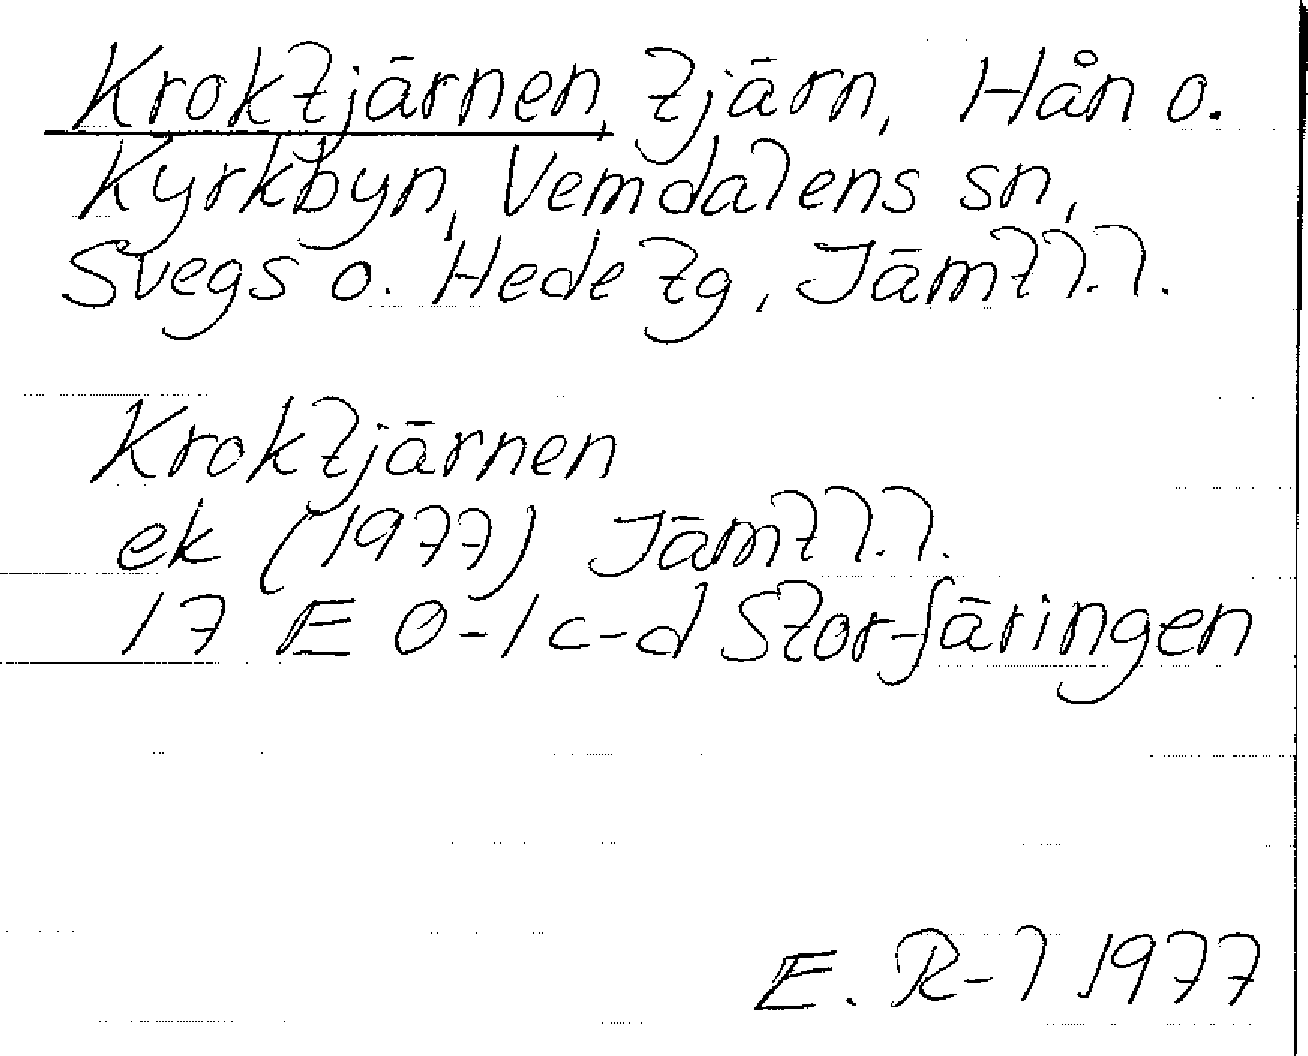 Kroktjärnen, tjärn, Hån o.
Kyrkbyn, Vemdalens sn,
Svegs o. Hede tg, Jämtl.l.
Kroktjärnen
ek (1977) Jämtl.l.
17 E 0-1 c-d Storfäringen
E. R-l 1977